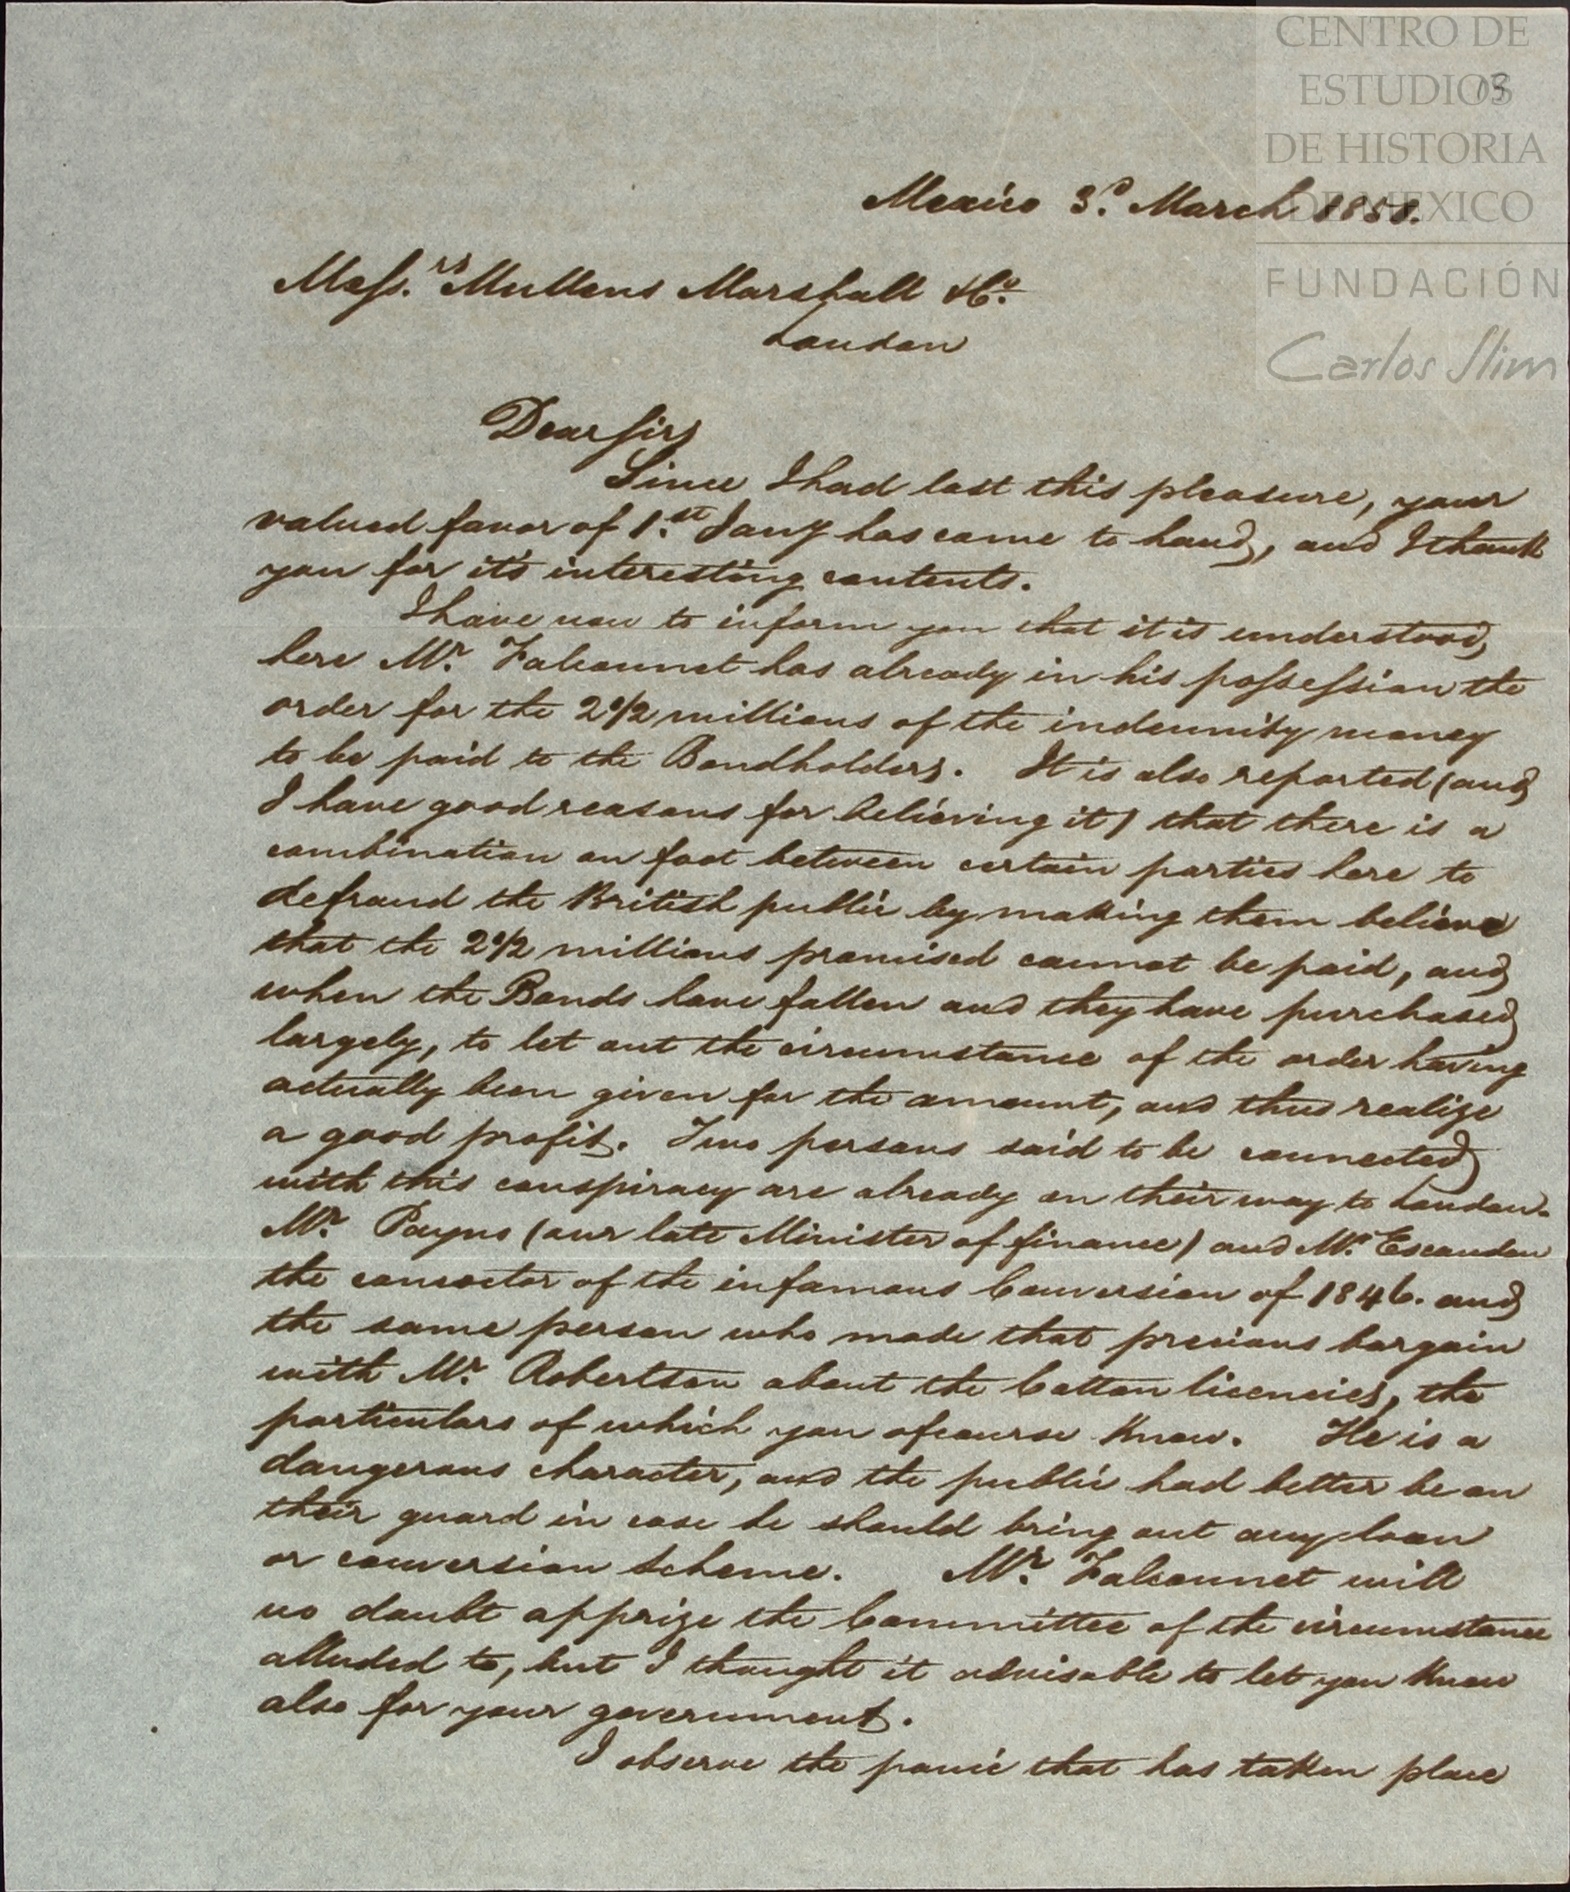 CENTRO DE
ESTUDIOS
DE HISTORIA
DE MEXICO
FUNDACIÓN
Carlos Slim
13
Mexico 3.d March 1851.
Mess.rs Mullens Marshall & Co.
London
Dear Sirs
Since I had last this pleasure, your
valued favor of 1.st Jany has come to hand, and I thank
you for it's interesting contents.
I have now to inform you that it is understood
here Mr. Falconnet has already in his possession the
order for the 2 1/2 millions of the indemnity money
to be paid to the Bondholders. It is also reported (and
I have good reasons for believing it) that there is a
combination on foot between certain parties here to
defraud the British public by making them believe
that the 2 1/2 millions promised cannot be paid, and
when the Bonds have fallen and they have purchased
largely, to let out the circumstance of the order having
actually been given for the amount, and thus realize
a good profit. Two persons said to be connected
with this conspiracy are already on their way to London.
Mr. Payno (our late Minister of finance) and Mr. Escandon
the concoctor of the infamous Conversion of 1846. and
the same person who made that precious bargain
with Mr. Robertson about the Cotton licencies, the
particulars of which you ofcourse know. He is a
dangerous character, and the public had better be on
their guard in case he should bring out any loan
or conversion scheme. Mr. Falconnet will
no doubt apprize the Committee of the circumstance
alluded to, but I thought it advisable to let you know
also for your government.
I observe the panic that has taken place